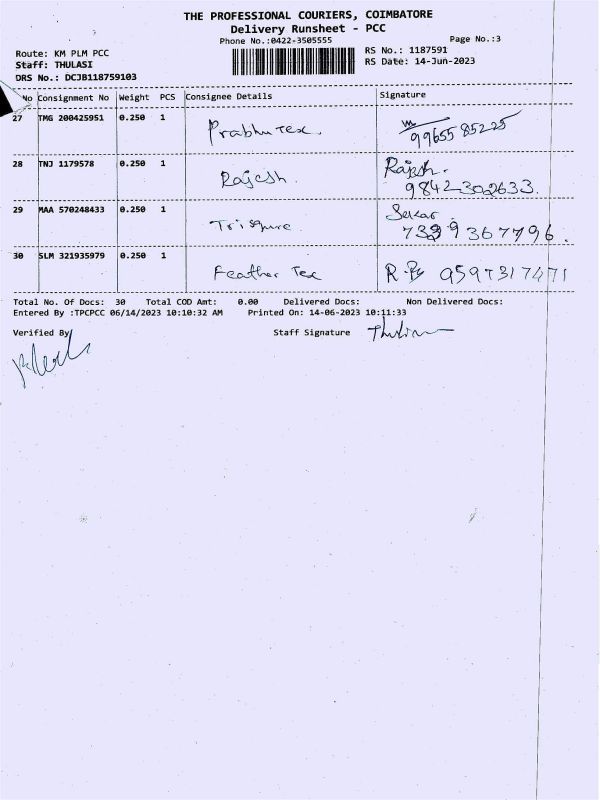 THE PROFESSIONAL COURIERS, COIMBATORE
Delivery Runsheet - PCC
Phone No.:0422-3505555
Page No.:3
Route: KM PLM PCC
RS No.: 1187591
Staff: THULASI
RS Date: 14-Jun-2023
DRS No.: DCJB118759103
No Consignment No Weight PCS Consignee Details Signature
27 TMG 200425951 0.250 1 Prabhu Tex. 99655 85225
28 TNJ 1179578 0.250 1 Rajesh. Rajesh.
9842302633.
29 MAA 570248433 0.250 1 Trisqure Sekar
30 SLM 321935979 0.250 1 Feather Tex R.
Total No. Of Docs: 30 Total COD Amt: 0.00 Delivered Docs: Non Delivered Docs:
Entered By :TPCPCC 06/14/2023 10:10:32 AM Printed On: 14-06-2023 10:11:33
Verified By Staff Signature